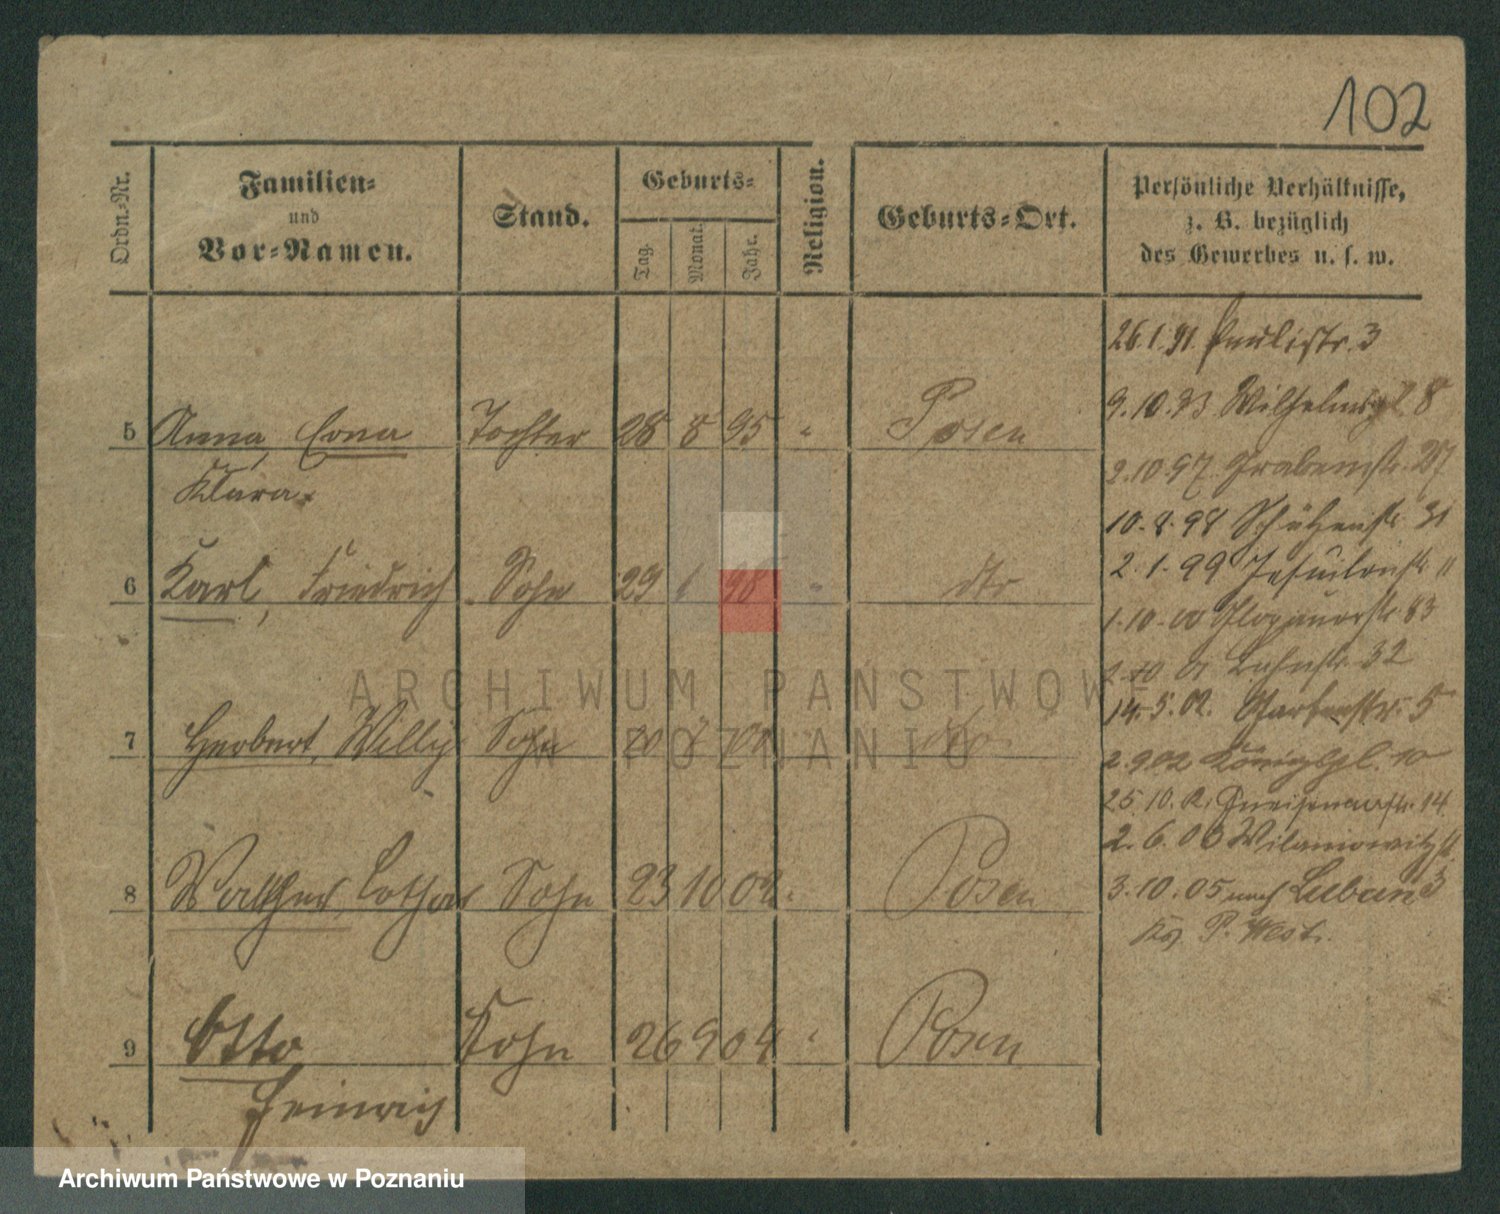 102
Ordn.-Nr.
Familien-
und
Vor-Namen.
Stand.
Geburts-
Tag.
Monat.
Jahr.
Religion.
Geburts-Ort.
Persönliche Verhältnisse,
z. B. bezüglich
des Gewerbes u. s. w.
26.1.91 Paulistr. 3
9.10.93 Wilhelmspl 8
5 Anna, Erna Tochter 28 8 95 " Posen
2.10.97. Grabenstr. 27
Klara.
10.8.98 Schützenstr. 31
2.1.99 Jesuitenstr. 11
6 Karl, Friedrich Sohn 29 1 98 " dto
1.10.00 Glogauerstr. 83
2.10.01 32
14.5.02. Gartenstr. 5
7 Herbert, Willy Sohn
2.9.02 Königspl. 10
25.10.02. Gneisenaustr. 14
2.6.03 Wilamowitzstr.
3
8 Walther, Lothar Sohn 23 10 02 " Posen
3.10.05 nach Luban
P. West.
9 Otto Sohn 26 9 04 " Posen
Heinrich
ARCHIWUM PAŃSTWOWE
W POZNANIU
Archiwum Państwowe w Poznaniu